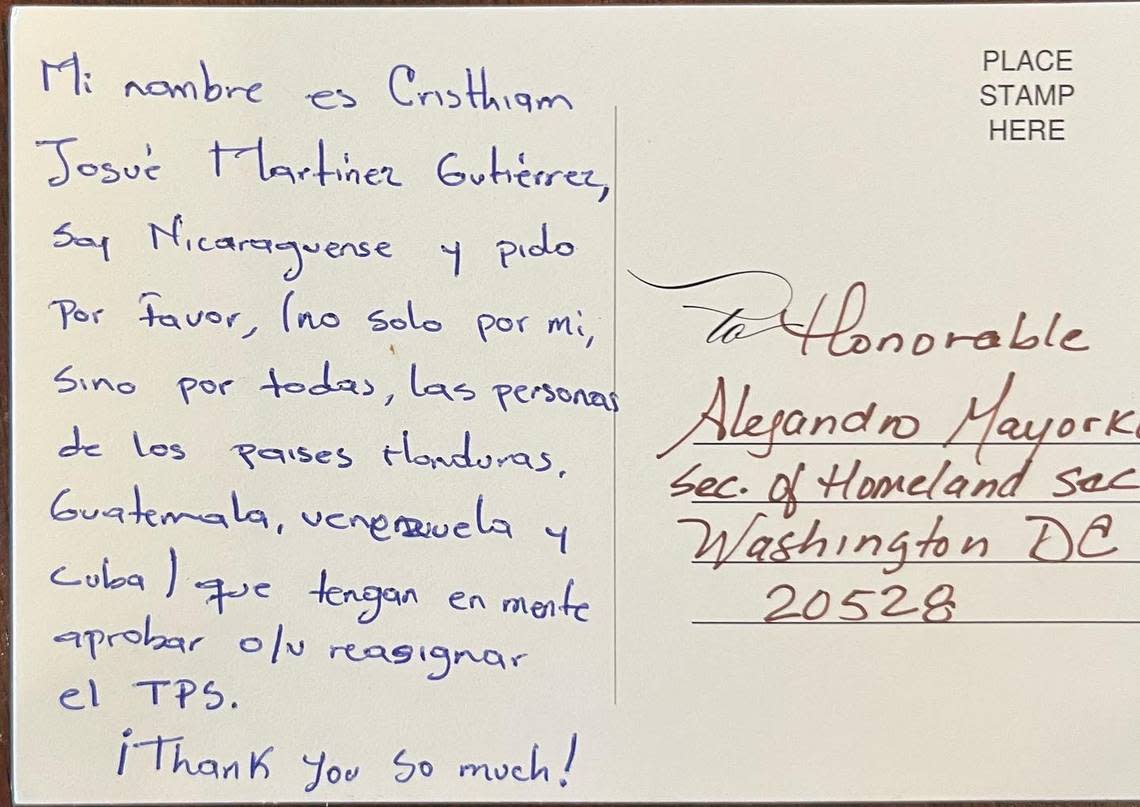 Mi nombre es Cristhiam
Josué Martínez Gutiérrez,
soy Nicaraguense y pido
por favor, (no solo por mi,
sino por todas, las personas
de los paises Honduras,
Guatemala, venezuela y
Cuba) que tengan en mente
aprobar o/u reasignar
el TPS.
¡Thank you so much!
PLACE
STAMP
HERE
To Honorable
Alejandro Mayork
Sec. of Homeland Sec
Washington DC
20528